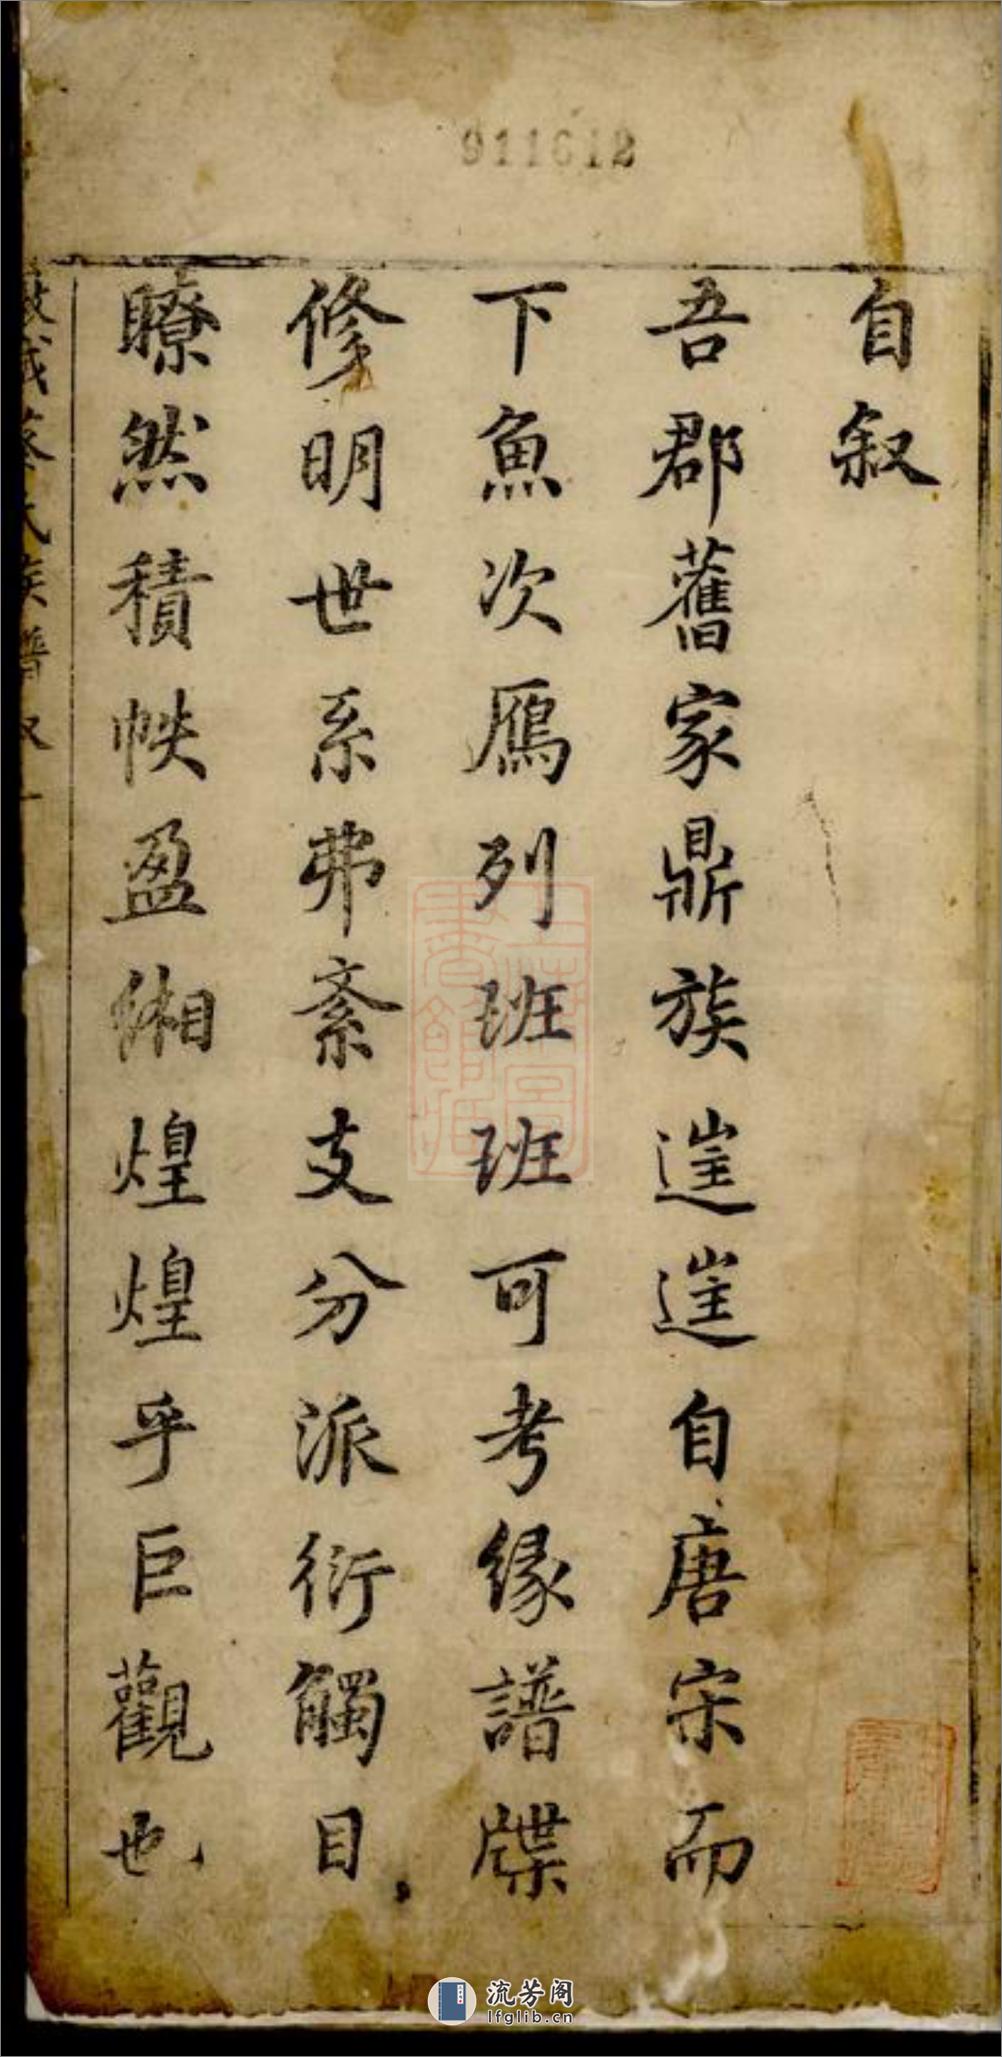 自叙
吾郡舊家鼎族逹逹自唐宋而
下魚次鴈列班班可考緣譜牒
修明世系弗紊支分派衍觸目
瞭然積帙盈緗煌煌乎巨觀也
氏族譜叙 一
911612
流芳阁
lfglib.cn